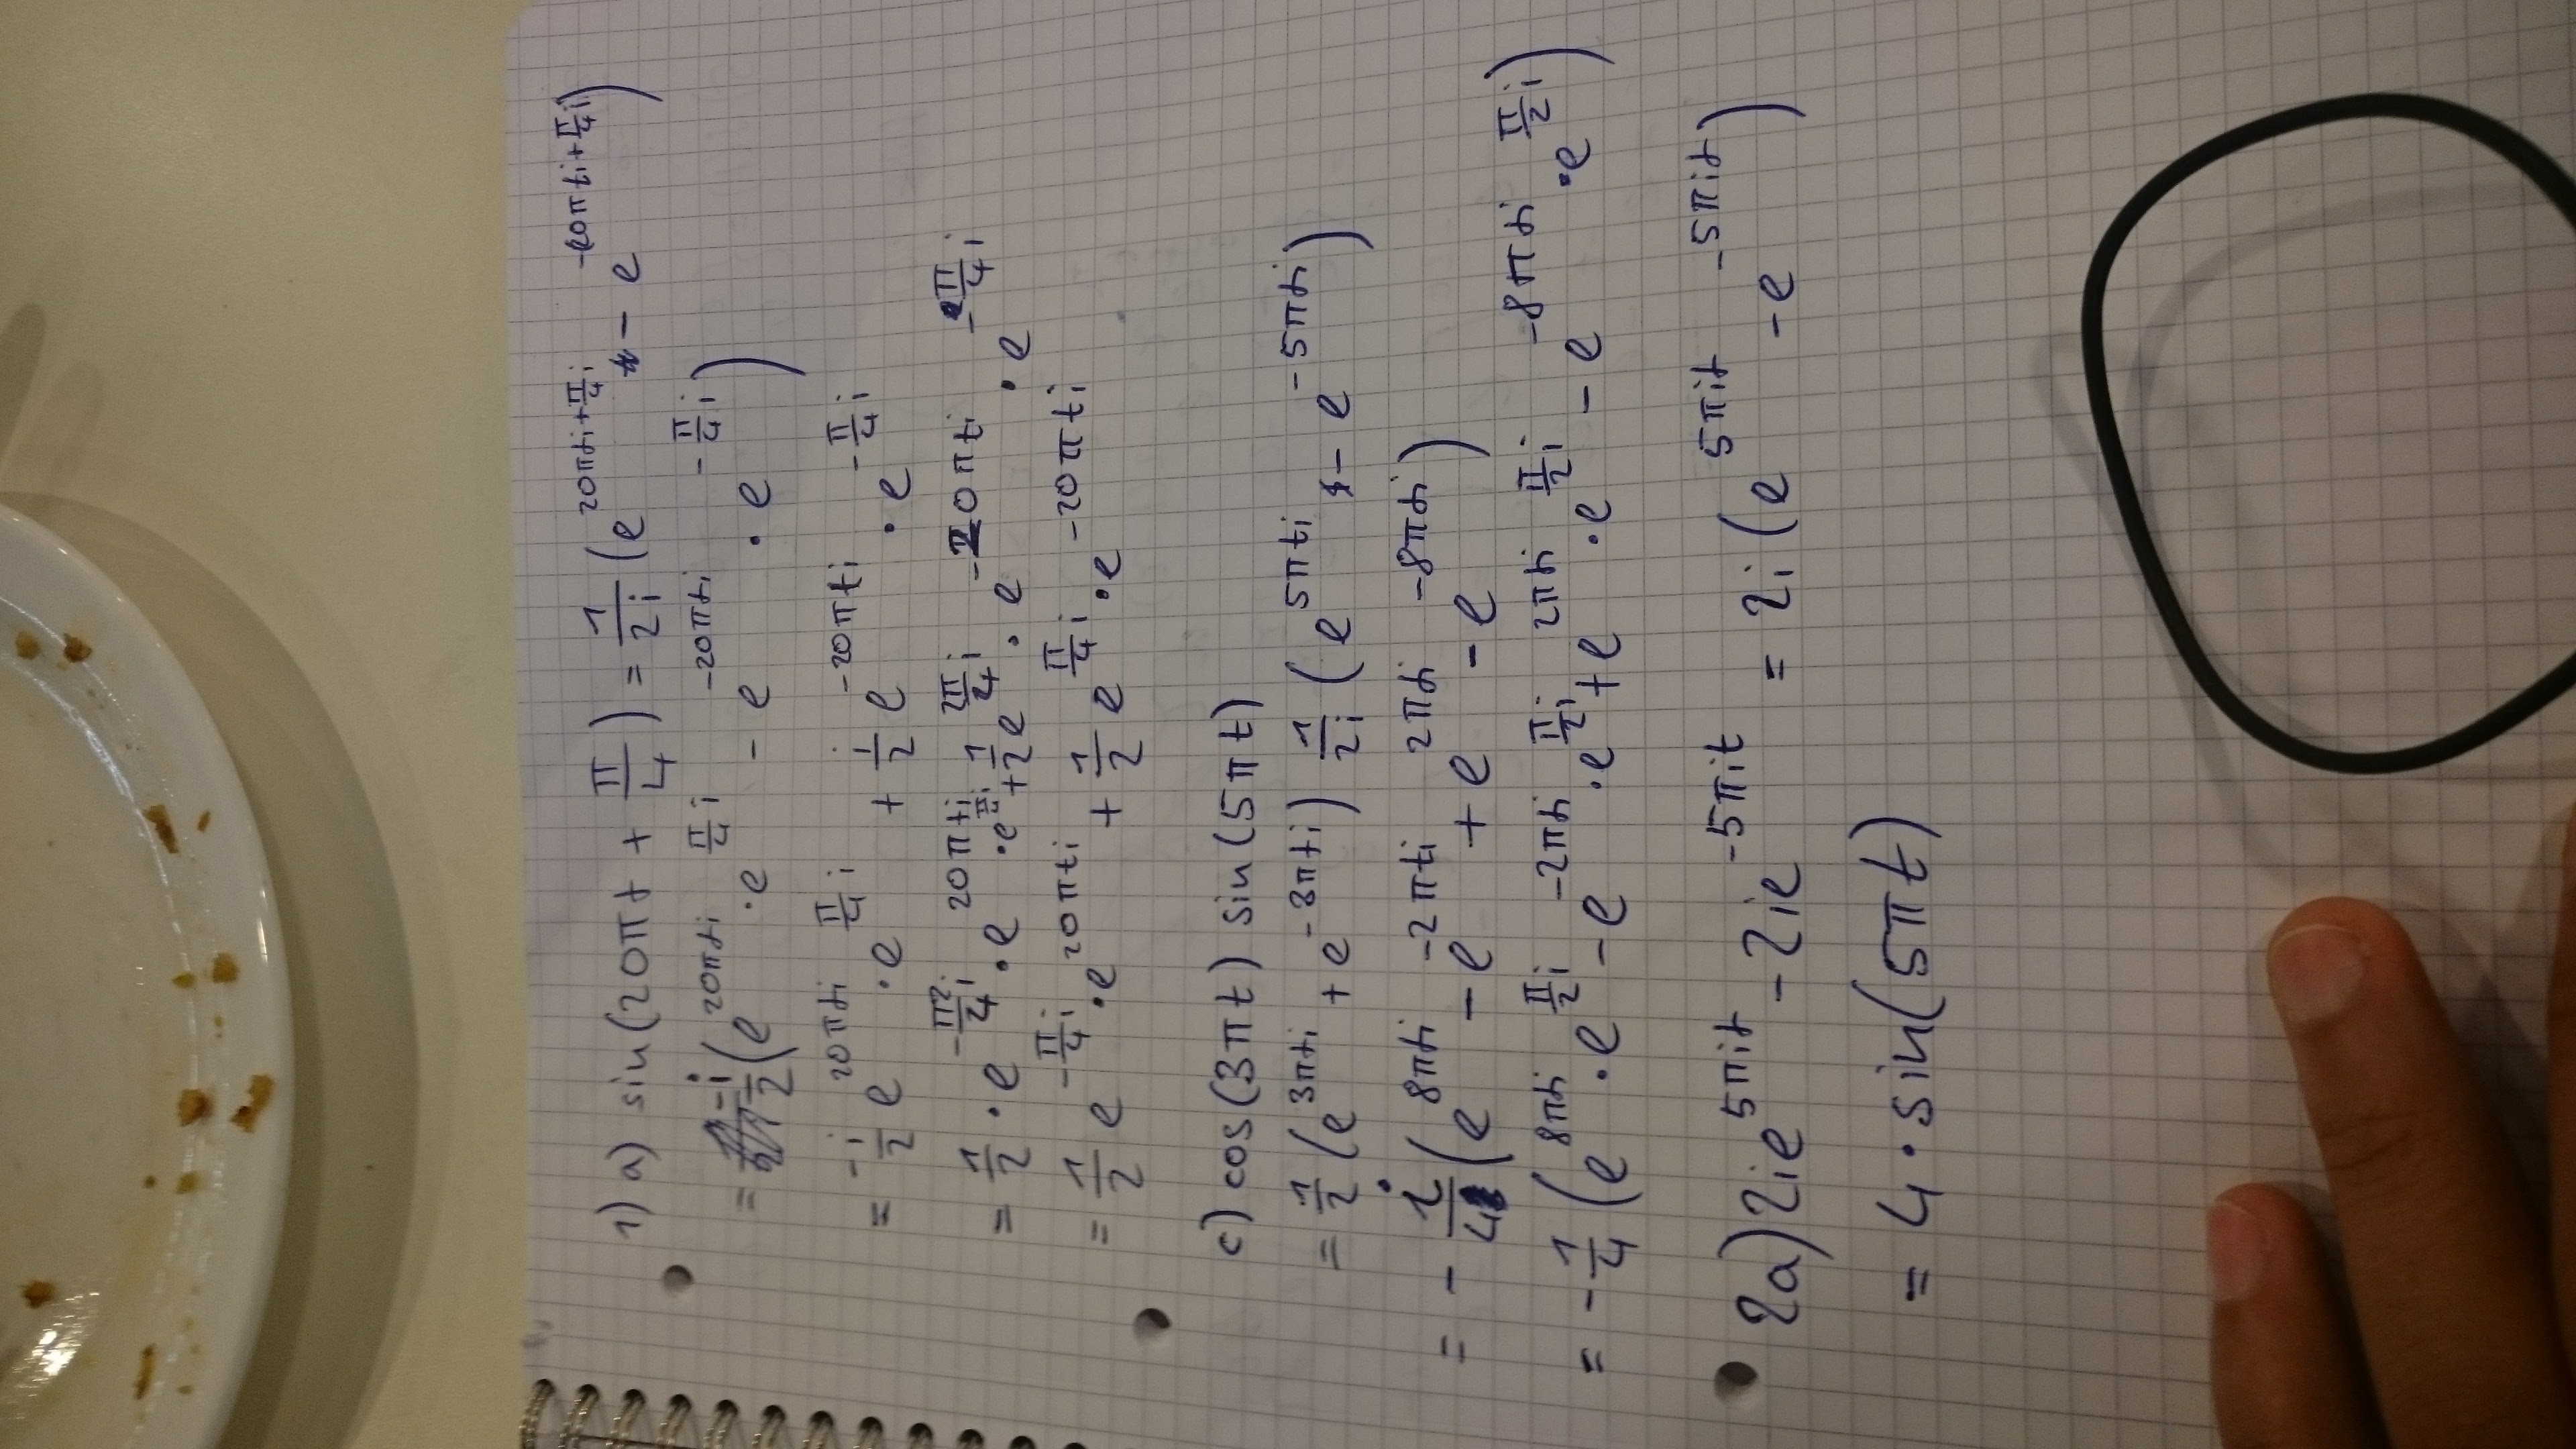 1) a) sin(20πt + π/4) = 1/2i (e^(20πti+π/4 i) - e^(-(20πti+π/4 i)))
= -i/2 (e^(20πti) · e^(π/4 i) - e^(-20πti) · e^(-π/4 i))
= -i/2 e^(20πti) · e^(π/4 i) + i/2 e^(-20πti) · e^(-π/4 i)
= 1/2 · e^(-π2/4 i) · e^(20πti) · e^(π/4 i) + 1/2 e^(2π/4 i) · e^(-20πti) · e^(-π/4 i)
= 1/2 e^(-π/4 i) · e^(20πti) + 1/2 e^(π/4 i) · e^(-20πti)
c) cos(3πt) sin(5πt)
= 1/2 (e^(3πti) + e^(-3πti)) 1/2i (e^(5πti) - e^(-5πti))
= - i/4 (e^(8πti) - e^(-2πti) + e^(2πti) - e^(-8πti))
= - 1/4 (e^(8πti) · e^(π/2 i) - e^(-2πti) · e^(π/2 i) + e^(2πti) · e^(π/2 i) - e^(-8πti) · e^(π/2 i))
2a) 2ie^(5πit) - 2ie^(-5πit) = 2i(e^(5πit) - e^(-5πit))
= 4 · sin(5πt)